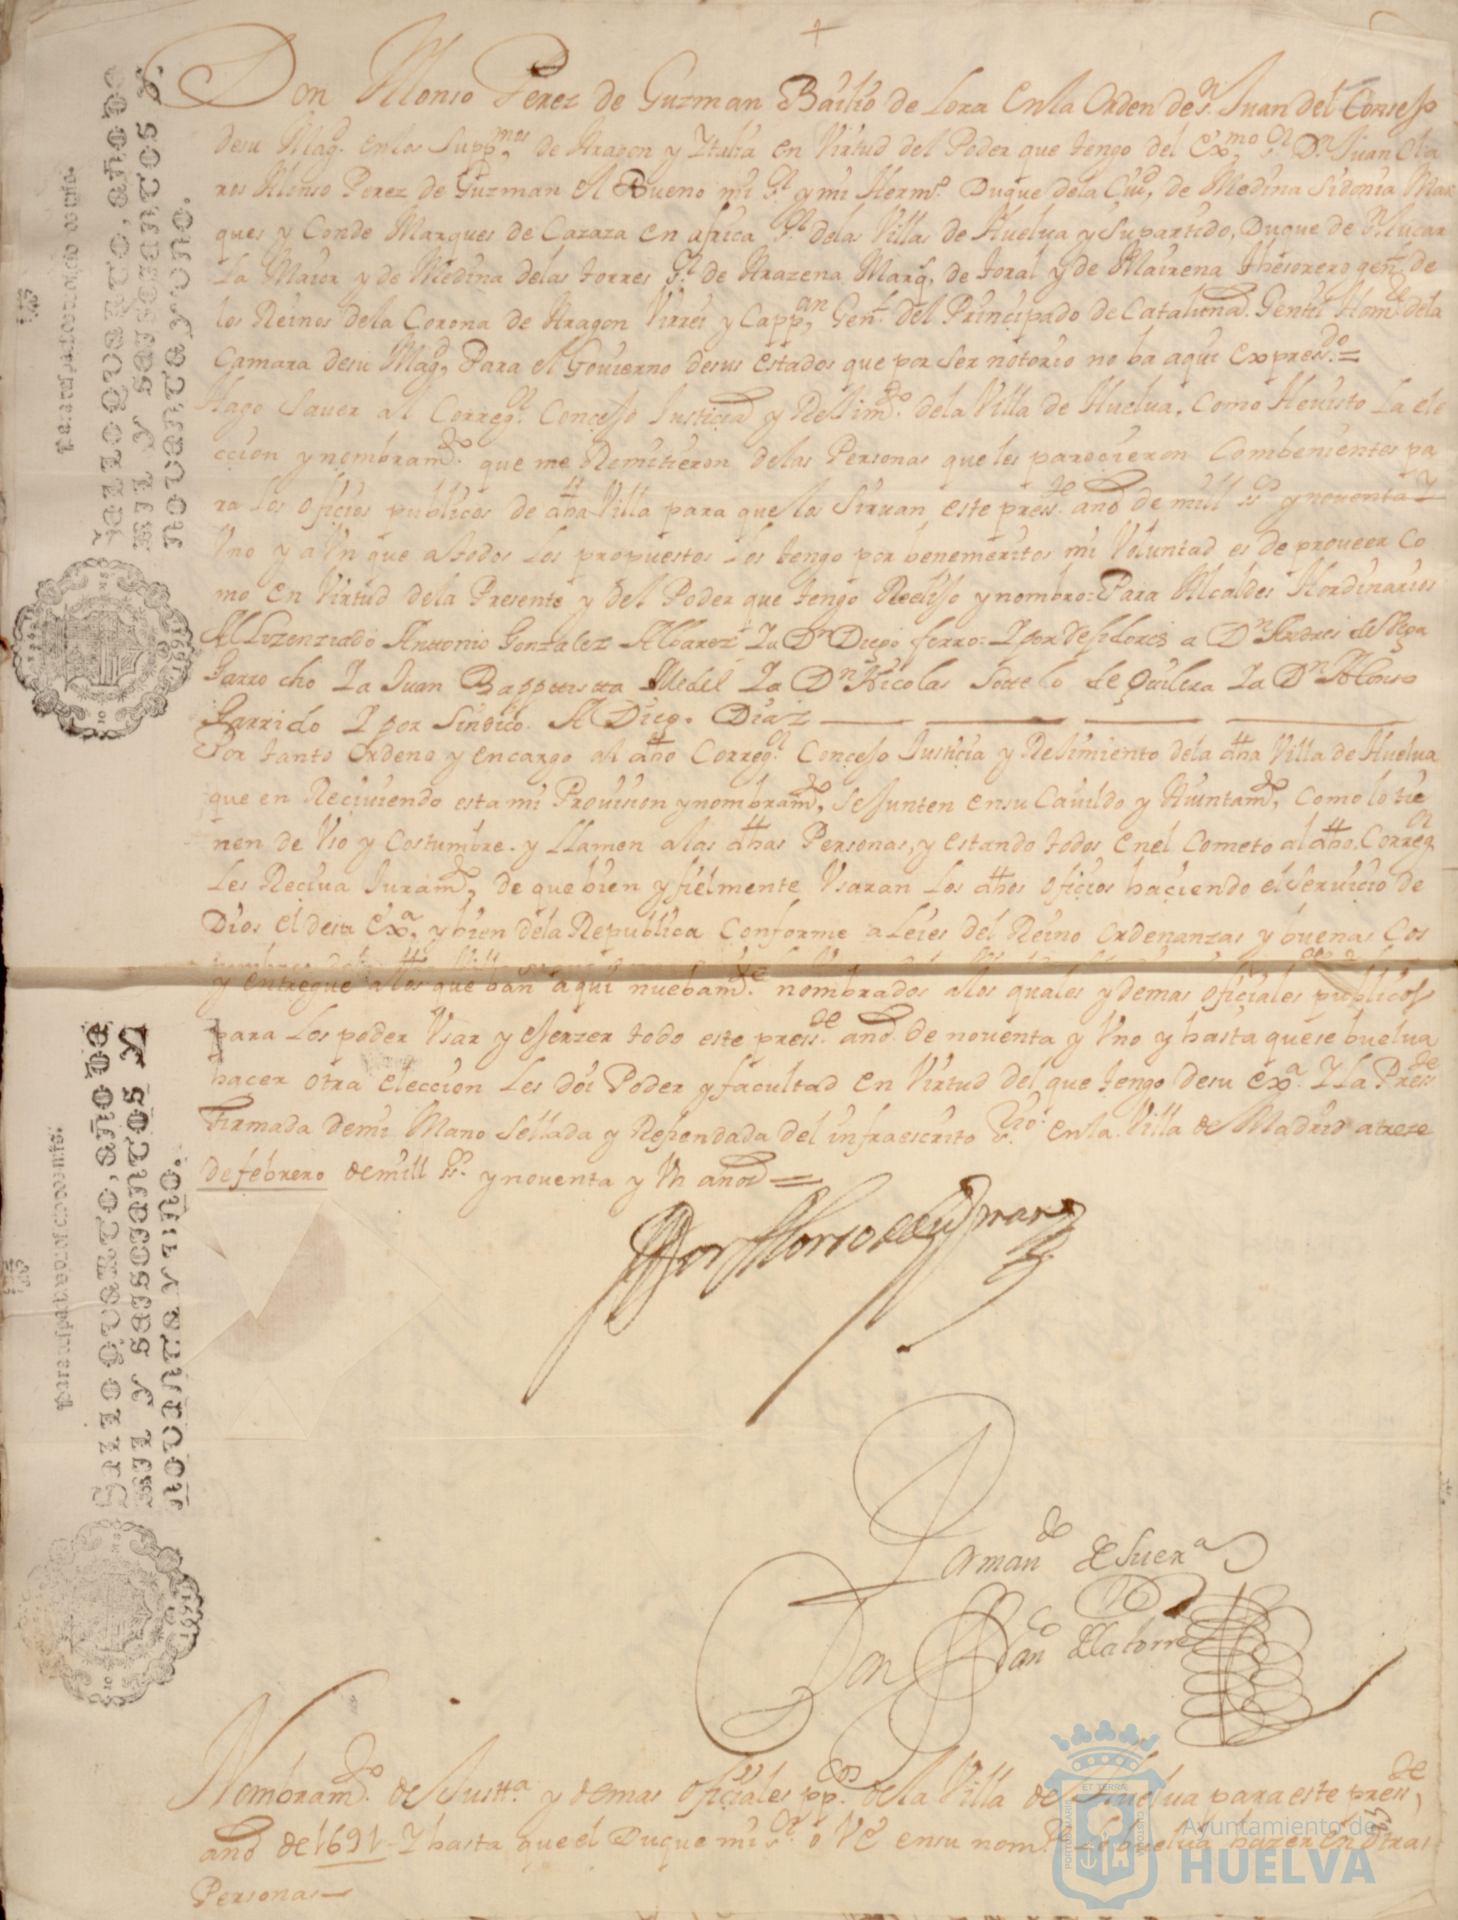 Don Alonso Perez de Guzman Bailio de Lora en la Orden de Sn. Juan del Consejo
de su Magd. en los Suppmos. de Aragon y Ytalia en Virtud del Poder que tengo del Exmo. Sr. Dn. Juan Cla
ros Alonso Perez de Guzman el Bueno mi Sr. y mi Hermo. Duque de la Ciud. de Medina Sidonia Mar
ques y Conde Marques de Cazaza en africa Sr. de las Villas de Huelua y su partido, Duque de Sn. Lucar
La Maior y de Medina de las torres Sr. de Arazena Marq. de toral y de Mairena thesorero genl. de
los Reinos de la Corona de Aragon Virrei y Cappan. Genl. del Principado de Cataluna. Gentil Home. de la
Camara de su Magd. Para el Gouierno de sus estados que por ser notorio no ba aqui expressdo. =
Hago Sauer al Corregor. Concejo Justicia y Rejimto. de la Villa de Huelua, como He visto La ele
ccion y nombramto. que me Remitieron de las Personas que les parecieron Combenientes pa
ra los oficios publicos de dha Villa para que los Siruan este presste. año de mill ss. y noventa Y
Vno y a Vn que a todos los propuestos los tengo por benemeritos mi Voluntad es de proveer Co
mo en Virtud de la Presente y del Poder que tengo Elijo y nombro= Para Alcaldes Hordinarios
Al Lizenziado Anttonio Gonzalez Albarez Ya Dn Diego ferro= Y por Rejidores a Dn Andres de Vega
Garrocho Ya Juan Bapptistta Medel Ya Dn Nicolas Sottelo de Quilera Ya Dn Alonso
Garrido Y por Sindico Al Diego Diaz
Por tanto Ordeno y encargo al dho Corregor. Concejo Justicia y Rejimiento de la dha Villa de Huelua
que en Reciuiendo esta mi Prouision y nombramto. se Junten en su Cauildo y Aiuntamto. como lo tie
nen de Vso y Costumbre. y Llamen a las dhas Personas, y estando todos en el Cometo al dho. Corregor
Les Reciua Juramto. de que bien y fielmente Vsaran Los dhos oficios haciendo el Seruicio de
Dios el de su Exa. y bien de la Republica Conforme a Leies del Reino ordenanzas y buenas Cos
y entregue a los que ban aqui nuebamte. nombrados a los quales y demas oficiales publicos
para Los poder Vsar y ejerzer todo este presste. año de noventa y Vno y hasta que se buelua
hacer otra eleccion Les doi Poder y facultad en Virtud del que tengo de su exa. Y La Presste
Firmada de mi Mano sellada y Refrendada del infraescrito en la Villa de Madrid a treze
de febrero de mill ss. y noventa y Vn años =
Don Alonso de Guzman
Por mando de su exa
Don Franco de la torre
Nombramto. de Justta. y demas oficiales ppcos. de la Villa de Huelua para este presste,
año de 1691 - Y hasta que el Duque mi Sr. o VE en su nome. buelua hazer en otras
Personas
SELLO QVARTO, AÑO DE MIL Y SEISCIENTOS Y NOVENTA Y VNO.
SELLO QVARTO, AÑO DE MIL Y SEISCIENTOS Y NOVENTA Y VNO.
1691
1691
PORTUS MARIS
ET TERRÆ
CUSTODIA
Ayuntamiento de
HUELVA